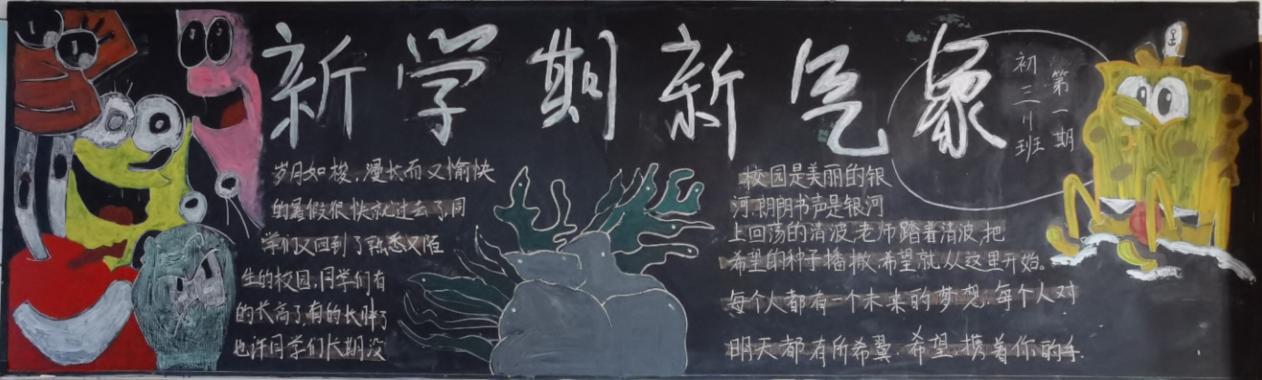 新学期新气象
第一期
初三11班
岁月如梭,漫长而又愉快
的暑假很快就过去了,同
学们又回到了熟悉又陌
生的校园,同学们有
的长高了,有的长胖了
也许同学们长期没
校园是美丽的银
河,朗朗书声是银河
上回荡的清波,老师踏着清波,把
希望的种子播撒,希望就从这里开始。
每个人都有一个未来的梦想,每个人对
明天都有所希翼,希望携着你的手.